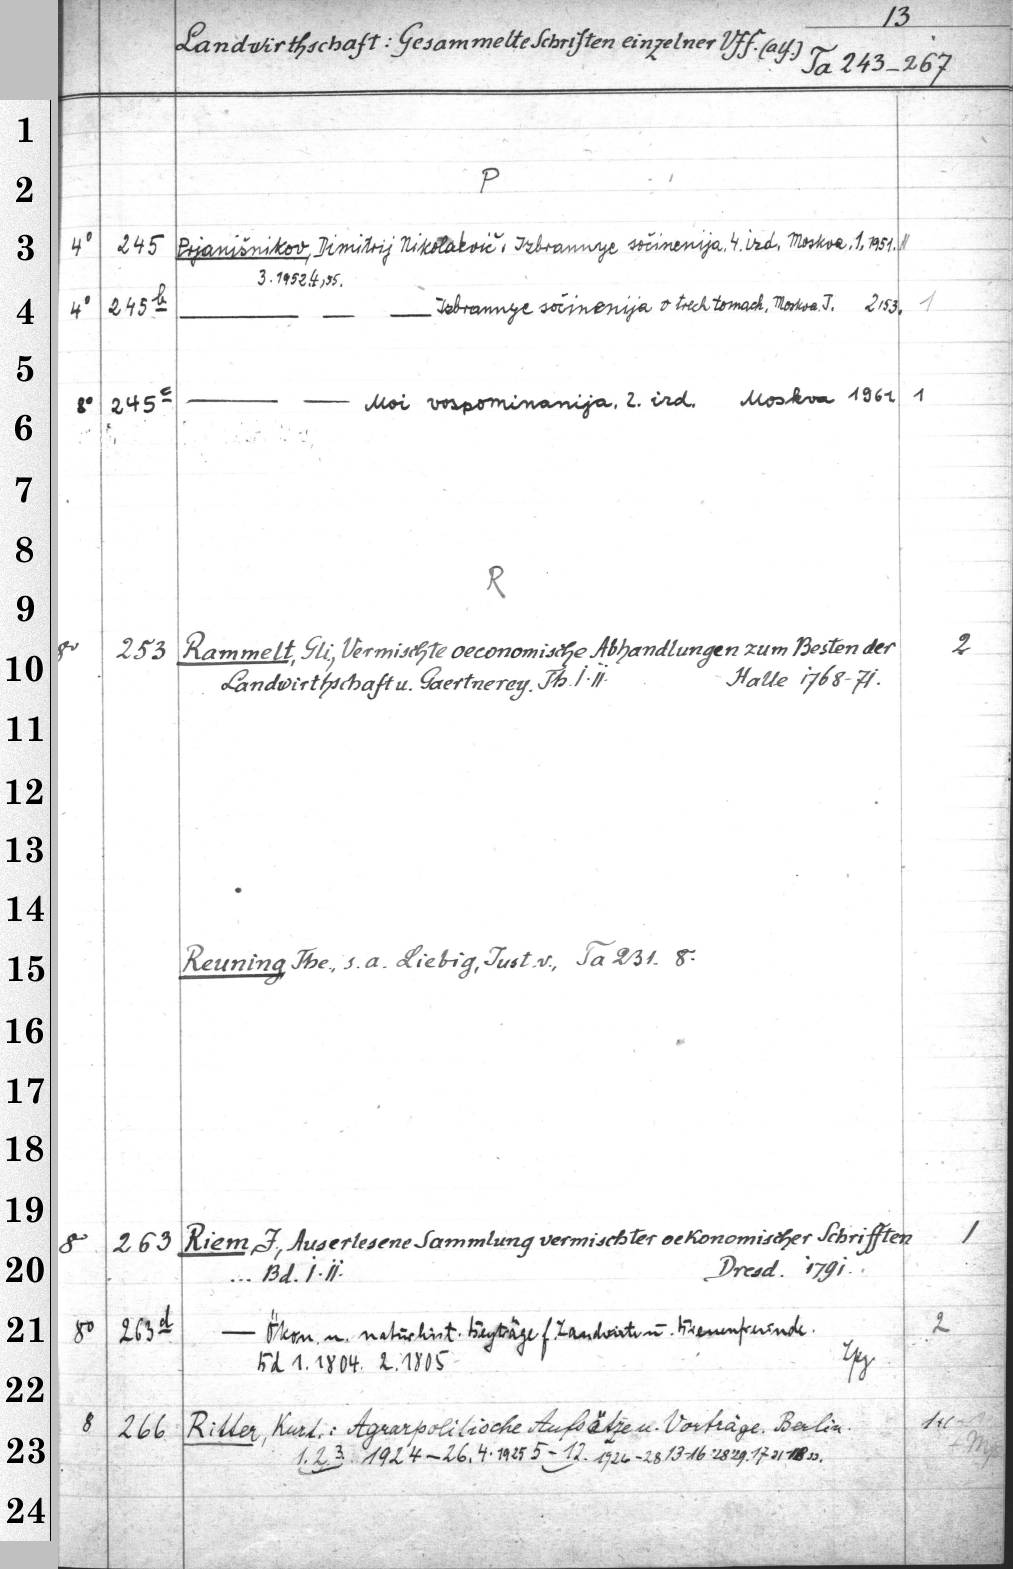 13
Landwirthschaft: Gesammelte Schriften einzelner Vff. (alf.) Ta 243-267
1
2 P
3 4° 245 Prjanišnikov, Dimitrij Nikolaevič: Izbrannye sočinenija. 4. izd. Moskva. 1. 1951. II
3. 1952. 4, 55.
4 4° 245 b Izbrannye sočinenija v trech tomach. Moskva. I. 1
5
8° 245 c Moi vospominanija. 2. izd. Moskva 1961 1
6
7
8
R
9
8° 253 Rammelt, Gli, Vermischte oeconomische Abhandlungen zum Besten der 2
10 Landwirthschaft u. Gaertnerey. Th. I. II. Halle 1768-71.
11
12
13
14
15 Reuning, The., s. a. Liebig, Just. v., Ta 231. 8.
16
17
18
19
8° 263 Riem, J., Auserlesene Sammlung vermischter oekonomischer Schrifften 1
20 ... Bd. I. II. Dresd. 1791.
21 8° 263 d — Ökon. u. naturhist. Beyträge f. Landwirte u. Bienenfreunde. 2
Bd 1. 1804. 2. 1805 Lpz
22
8 266 Ritter, Kurt.: Agrarpolitische Aufsätze u. Vorträge. Berlin.
23 1. 2. 3. 1924-26. 4. 1925 5-12. 1926-28 13-16 '28 '29. 17 31 18 33.
24